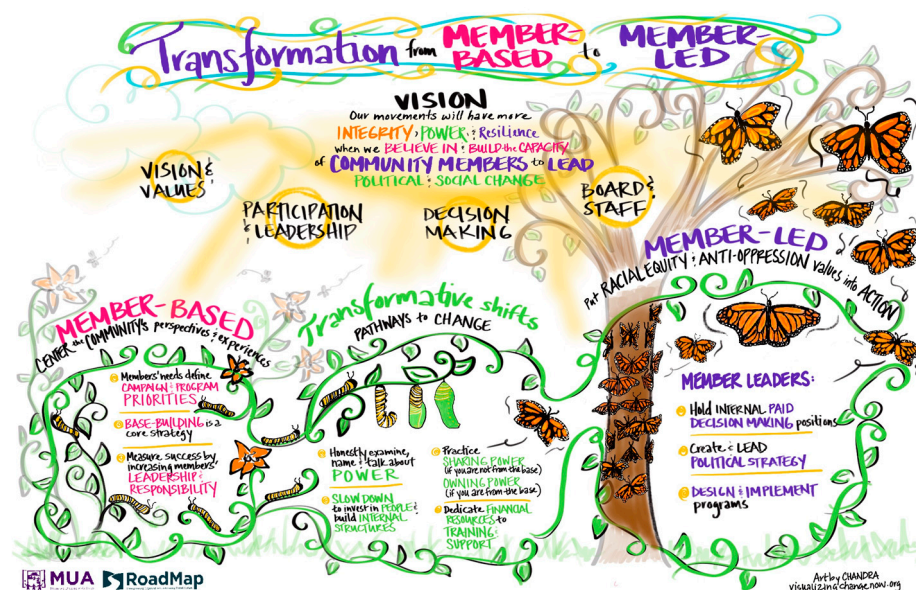 Transformation from MEMBER-BASED to MEMBER-LED
VISION
Our movements will have more
INTEGRITY, POWER, & Resilience
when we BELIEVE IN & BUILD the CAPACITY
of COMMUNITY MEMBERS to LEAD
POLITICAL & SOCIAL CHANGE
VISION &
VALUES
PARTICIPATION
& LEADERSHIP
DECISION
MAKING
BOARD &
STAFF
MEMBER-BASED
CENTER the COMMUNITY'S perspectives & experiences
Members' needs define
CAMPAIGN & PROGRAM
PRIORITIES
BASE-BUILDING is a
core strategy
Measure success by
increasing members'
LEADERSHIP &
RESPONSIBILITY
Transformative shifts
PATHWAYS to CHANGE
Honestly examine,
name & talk about
POWER
SLOW DOWN
to invest in PEOPLE &
build INTERNAL
STRUCTURES
Practice
SHARING POWER
(if you are not from the base)
OWNING POWER
(if you are from the base)
Dedicate FINANCIAL
RESOURCES to
TRAINING &
SUPPORT
MEMBER-LED
Put RACIAL EQUITY & ANTI-OPPRESSION values into ACTION
MEMBER LEADERS:
Hold INTERNAL PAID
DECISION MAKING positions
Create & LEAD
POLITICAL STRATEGY
DESIGN & IMPLEMENT
programs
MUA
RoadMap
Art by CHANDRA
visualizingchangenow.org